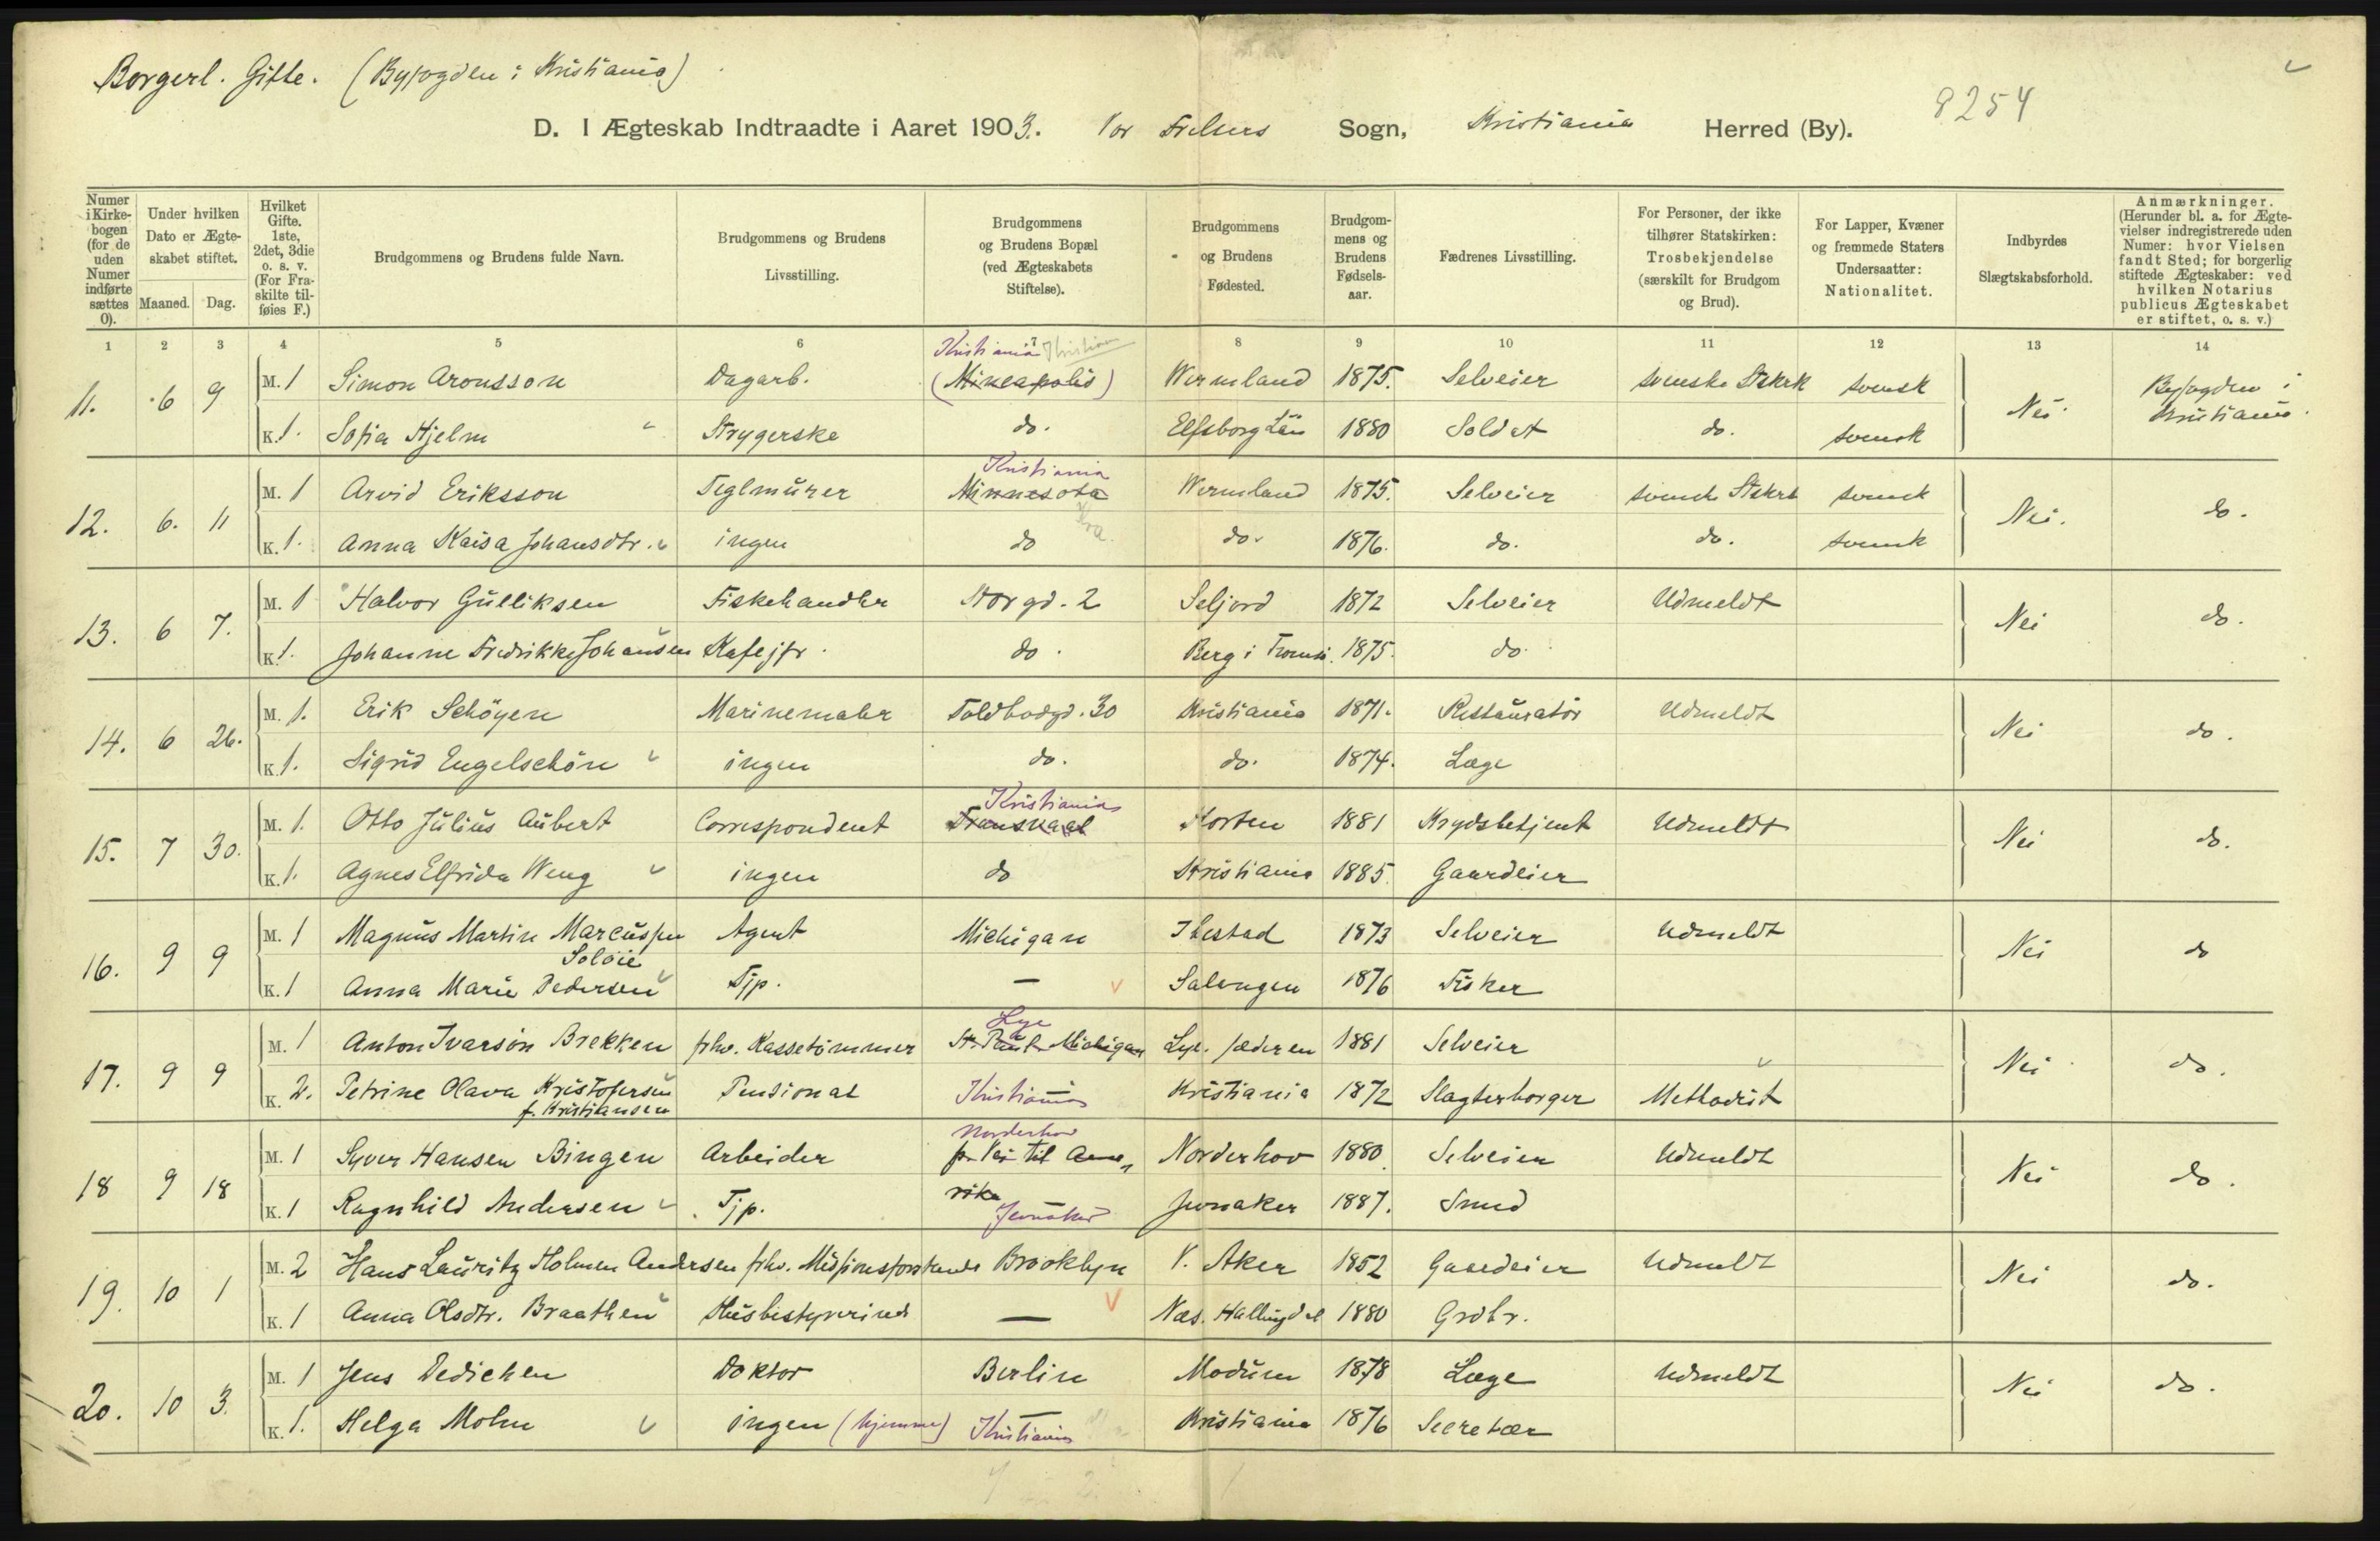 Borgerl. Gifte. (Byfogden i Kristiania)
8254
D. I Ægteskab Indtraadte i Aaret 1903. Vor Frelsers Sogn, Kristiania Herred (By).
Numer i Kirkebogen (for de uden Numer indførte sættes 0). | Under hvilken Dato er Ægteskabet stiftet. Maaned. Dag. | Hvilket Gifte. 1ste, 2det, 3die o. s. v. (For Fraskilte tilføies F.) | Brudgommens og Brudens fulde Navn. | Brudgommens og Brudens Livsstilling. | Brudgommens og Brudens Bopæl (ved Ægteskabets Stiftelse). | Brudgommens og Brudens Fødested. | Brudgommens og Brudens Fødselsaar. | Fædrenes Livsstilling. | For Personer, der ikke tilhører Statskirken: Trosbekjendelse (særskilt for Brudgom og Brud). | For Lapper, Kvæner og fremmede Staters Undersaatter: Nationalitet. | Indbyrdes Slægtskabsforhold. | Anmærkninger. (Herunder bl. a. for Ægtevielser indregistrerede uden Numer: hvor Vielsen fandt Sted; for borgerlig stiftede Ægteskaber: ved hvilken Notarius publicus Ægteskabet er stiftet, o. s. v.)
1 2 3 4 5 6 7 8 9 10 11 12 13 14
Kristiania Kristian
11. 6 9 M. 1 Simon Aronsson Dagarb. (Mineapolis) Wermland 1875. Selveier svenske Stskrk svensk Nei. Byfogden i Kristiania.
K. 1. Sofia Hjelm Strygerske do. Elfsborg Län 1880 Soldat do. svensk
Kristiania
12. 6. 11 M. 1 Arvid Eriksson Teglmurer Minnesota Wermland 1875. Selveier svensk Stskrk svensk Nei. do.
Kra.
K. 1. Anna Kaisa Johansdtr. ingen do do. 1876. do. do. svensk
13. 6 7. M. 1 Halvor Gulliksen Fiskehandler Storgd. 2 Seljord 1872 Selveier Udmeldt Nei do.
K. 1. Johanne Fredrikke Johansen Kafejfr. do. Berg i Tromsö. 1875. do.
14. 6 26. M. 1. Erik Schöyen Marinemaler Toldbodgd. 30 Kristiania 1871. Restauratör Udmeldt Nei do.
K. 1. Sigrid Engelschön ingen do. do. 1874. Læge
Kristiania
15. 7 30. M. 1. Otto Julius Aubert Correspondent Transvaal Horten 1881 Krydsbetjent Udmeldt Nei do.
K. 1. Agnes Elfrida Weng ingen do Kristiania 1885. Gaardeier
16. 9 9 M. 1 Magnus Martin Marcussen Agent Michigan Ibestad 1873 Selveier Udmeldt Nei do
Soløie
K. 1 Anna Marie Pedersen Tjp. — Salangen 1876 Fisker
Lye
17. 9 9 M. 1 Anton Ivarson Brekken fhv. Kassetömmer St. Paul. Michigan Lye. Jæderen 1881 Selveier Nei do.
K. 2. Petrine Olava Kristofersen Pensionat Kristiania Kristiania 1872 Slagterborger Methodist
f. Kristiansen
Norderhov
18 9 18 M. 1 Syver Hansen Bingen Arbeider på Vei til Ame- Norderhov 1880 Selveier Udmeldt Nei do.
rika
K. 1 Ragnhild Andersen Tjp. — Jevnaker Jevnaker 1887. Smed
19. 10 1 M. 2 Hans Lauritz Holmen Andersen fhv. Missionsforstander Brooklyn V. Aker 1852 Gaardeier Udmeldt Nei do.
K. 1 Anna Olsdtr. Braathen Husbestyrerinde — Næs. Hallingdal 1880 Grdbr.
20. 10 3. M. 1 Jens Dedichen Doktor Berlin Modum 1878 Læge Udmeldt Nei do.
K. 1. Helga Mohn ingen (hjemme) — Kristiania Kristiania 1876 Secretær